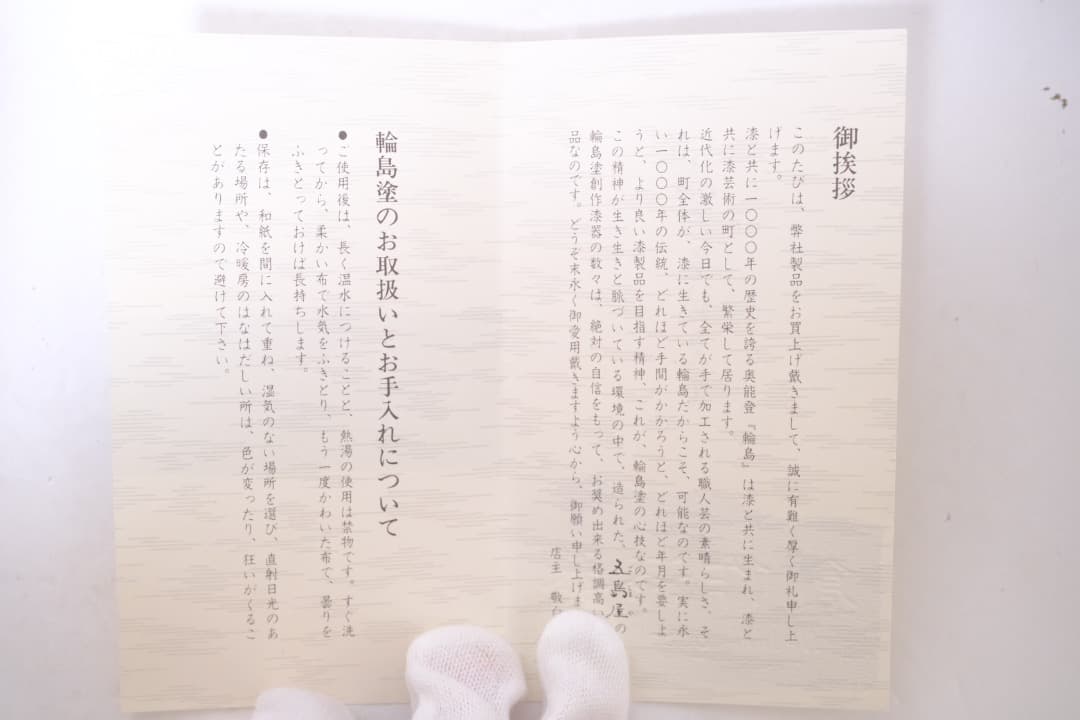 御挨拶
このたびは、弊社製品をお買上げ戴きまして、誠に有難く厚く御礼申し上
げます。
漆と共に一〇〇〇年の歴史を誇る奥能登『輪島』は漆と共に生まれ、漆と
共に漆芸術の町として、繁栄して居ります。
近代化の激しい今日でも、全てが手で加工される職人芸の素晴らしさ、そ
れは、町全体が、漆に生きている輪島だからこそ、可能なのです。実に永
い一〇〇〇年の伝統、どれほど手間がかかろうと、どれほど年月を要しよ
うと、より良い漆製品を目指す精神、これが、輪島塗の心技なのです。
この精神が生き生きと脈づいている環境の中で、造られた、五島屋の
輪島塗創作漆器の数々は、絶対の自信をもって、お奨め出来る格調高い
品なのです。どうぞ末永く御愛用戴きますよう心から、御願い申し上げま
店主 敬
輪島塗のお取扱いとお手入れについて
●ご使用後は、長く温水につけることと、熱湯の使用は禁物です。すぐ洗
ってから、柔かい布で水気をふきとり、もう一度かわいた布で、曇りを
ふきとっておけば長持ちします。
●保存は、和紙を間に入れて重ね、湿気のない場所を選び、直射日光のあ
たる場所や、冷暖房のはなはだしい所は、色が変ったり、狂いがくるこ
とがありますので避けて下さい。